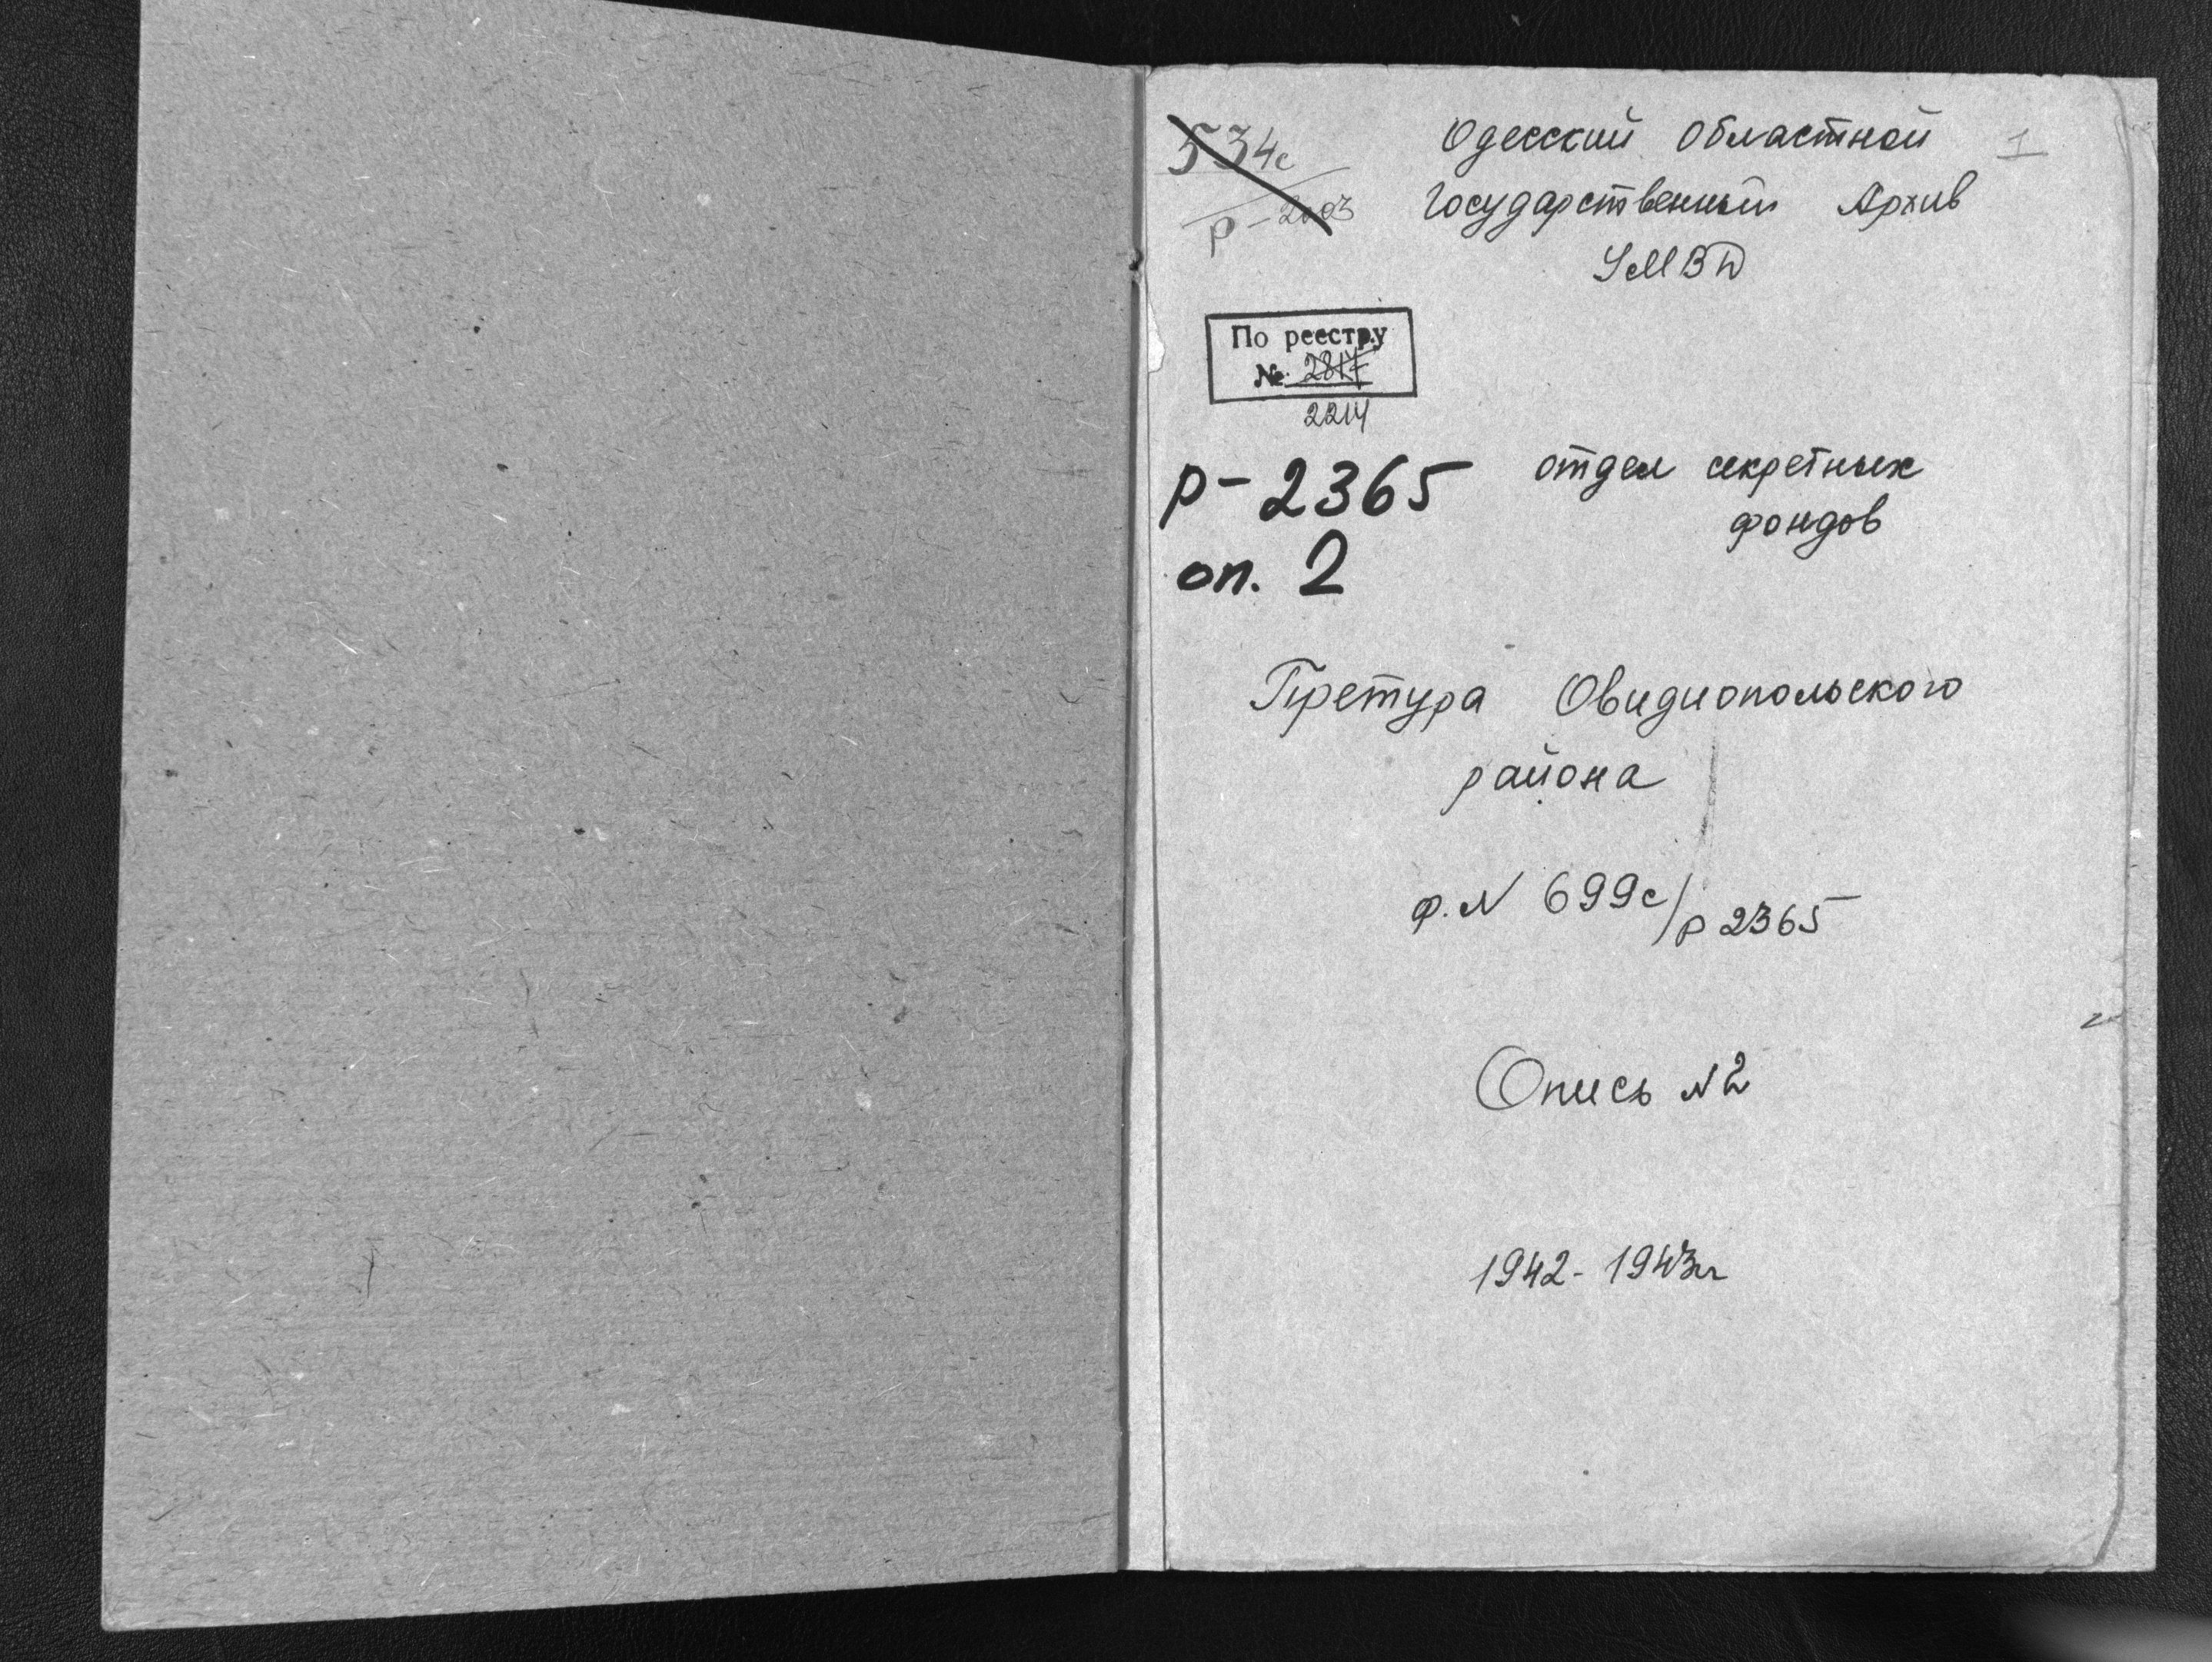 534с
Р-2003
Одесский Областной
1
Государственный Архив
УМВД
По реестру
№ 2817
2214
Р-2365
оп. 2
отдел секретных
фондов
Претура Овидиопольского
района
ф. N 699с/р 2365
Опись N 2
1942-1943гг